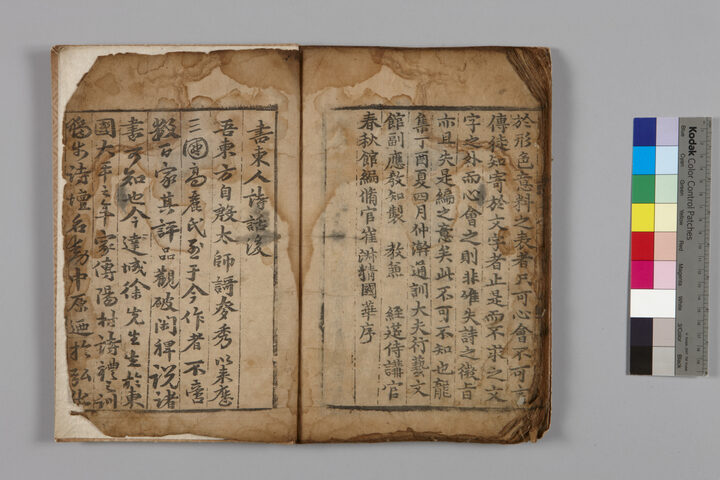 於形色意料之表者只可心會不可言
傳徒知寄於文字者止是而不求之文
字之外而心會之則非唯失詩之徵旨
亦且失是編之意矣此不可不知也龍
集丁酉夏四月仲澣通訓大夫行藝文
館副應敎知製 敎兼 經筵侍講官
春秋館編脩官崔淑精國華序
書東人詩話後
吾東方自殷太師謌麥秀以来歷
三國高麗氏至于今作者不啻
數百家其評品觀破閑稗說諸
書可知也今達城徐先生生於東
國大平之年家傳陽村詩禮之訓
獨步詩壇名動中原廼於
Kodak Color Control Patches
Blue
Cyan
Green
Yellow
Red
Magenta
White
3/Color
Black